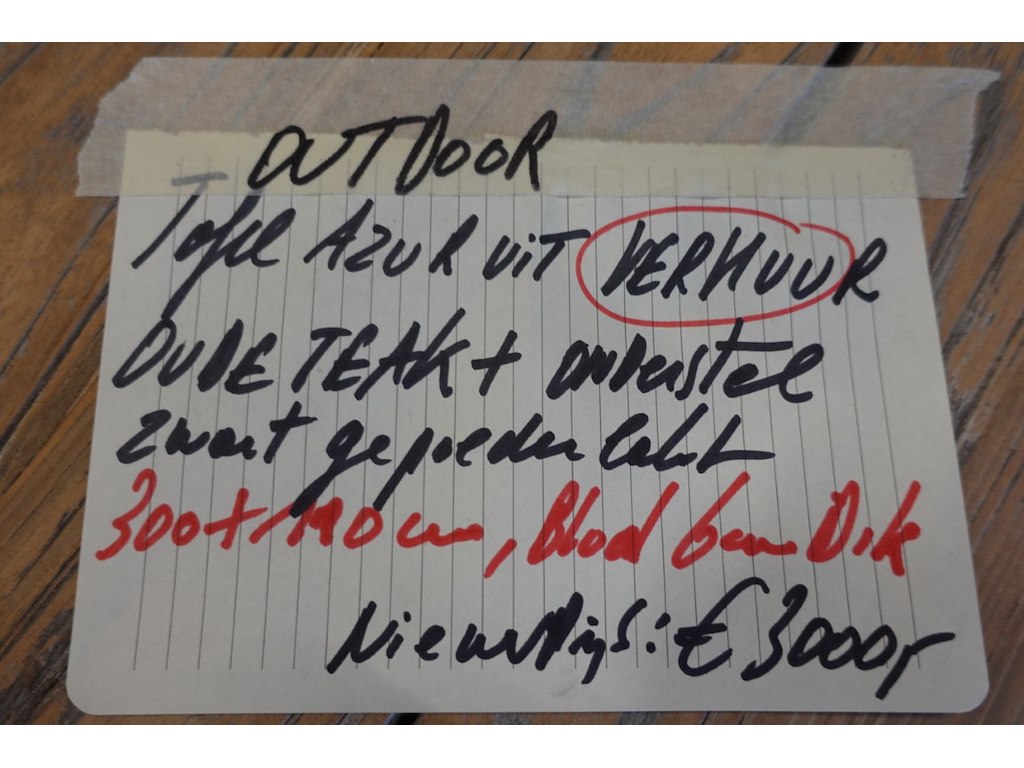 OUTDOOR
Tafel AZUR UIT VERHUUR
OUDE TEAK + ONDERstel
zwart gepoederlakt
300 + 110 cm, Blad 6cm Dik
Nieuwprijs: € 3000,-